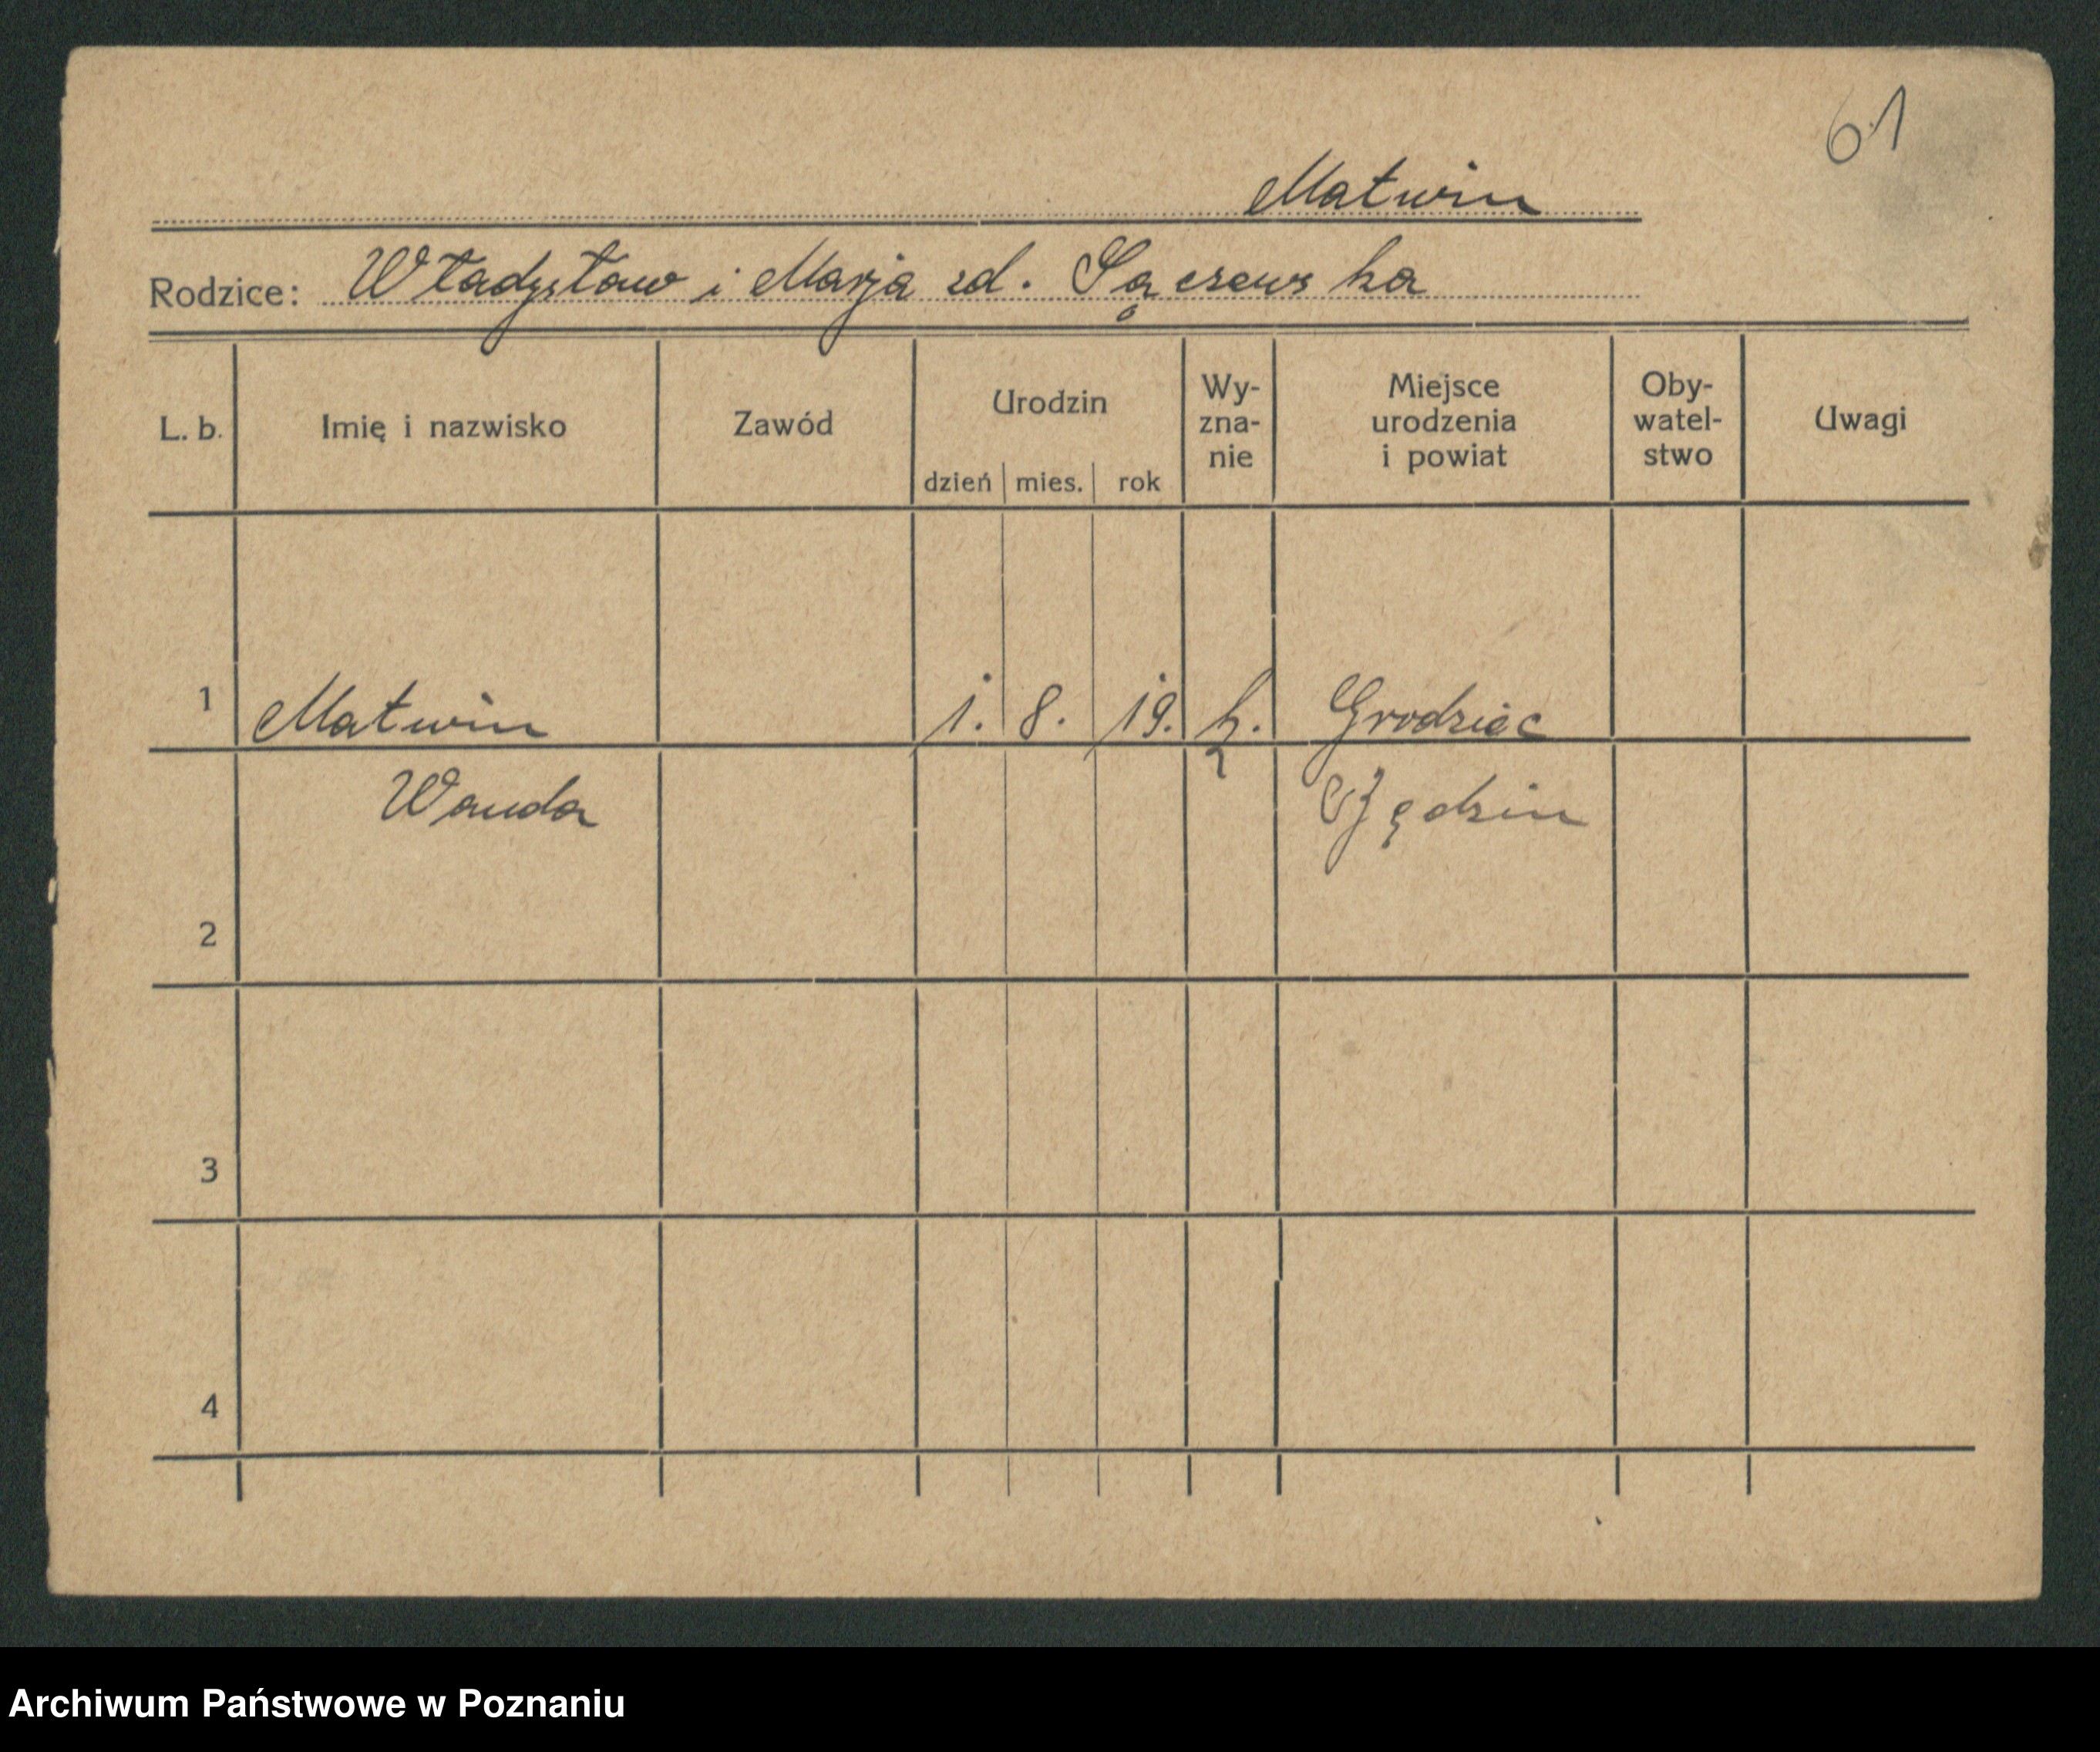 61
Matwin
Rodzice: Władysław i Marja zd. Sączewska
L. b. Imię i nazwisko Zawód Urodzin dzień mies. rok Wy-zna-nie Miejsce urodzenia i powiat Oby-watel-stwo Uwagi
1 Matwin 1. 8. 19. k. Grodziec
Wanda
2
3
4
Archiwum Państwowe w Poznaniu